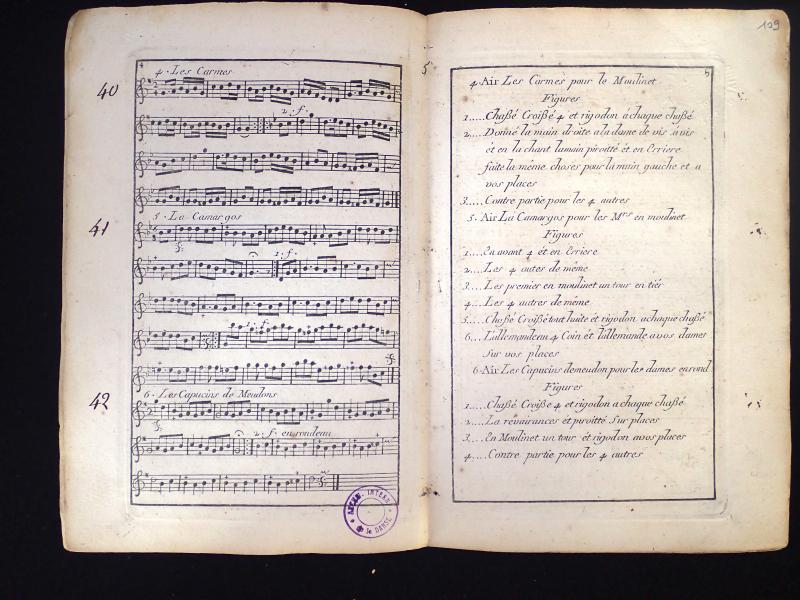 4
4. Les Carmes
40
2. f.
5. La Camargos
41
1. f.
1. f.
6. Les Capucins de Meudons
42
2. f. en rondeau
ARCHIV. INTERN. de la DANSE
109
5
5
4. Air Les Carmes pour le Moulinet
Figures
1.....Chaßé Croißé 4 et rigodon a chaque chaßé
2.....Donné la main droite a la dame de vis a vis
et en la chant lamain piroitté et en Erriere
faite la même choses pour la main gauche et a
vos places
3.....Contre partie pour les 4 autres
5. Air La Camargos pour les Mrs en moulinet
Figures
1....En avant 4 et en Erriere
2....Les 4 autes de même
3....Les premier en moulinet un tour en tiér
4....Les 4 autres de même
5....Chaßé Croißé tout huite et rigodon a chaque chaßé
6....L'allemande au 4 Coin et l'allemande a vos dames
Sur vos places
6. Air Les Capucins demeudon pour les dames en rond
Figures
1....Chaßé Croißé 4 et rigodon a chaque chaßé
2....La reverances et piroitté Sur places
3....En Moulinet un tour et rigodon avos places
4....Contre partie pour les 4 autres